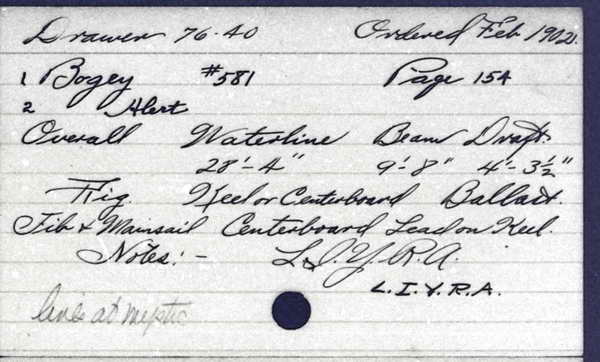 Drawer 76-40 Ordered Feb 1902.
1 Bogey #581 Page 154
2 Alert
Overall Waterline Beam Draft.
28'-4" 9'-8" 4'-3½"
Rig. Keel or Centerboard Ballast.
Jib & Mainsail Centerboard Lead on Keel.
Notes:- L.I.Y.R.A.
L.I.Y.R.A.
at Mystic